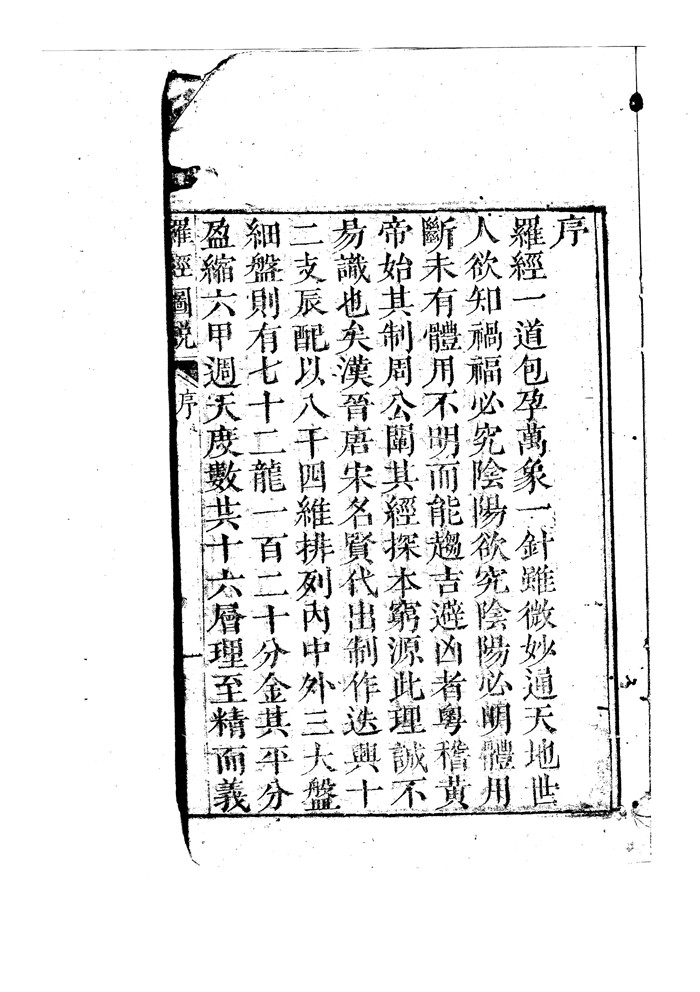 序
羅經一道包孕萬象一針雖微妙通天地世
人欲知禍福必究陰陽欲究陰陽必明體用
斷未有體用不明而能趨吉避凶者粵稽黃
帝始其制周公闡其經探本窮源此理誠不
易識也矣漢晉唐宋名賢代出制作迭興十
二支辰配以八干四維排列內中外三大盤
細盤則有七十二龍一百二十分金其平分
盈縮六甲週天度數共十六層理至精而義
羅經圖說
序
一